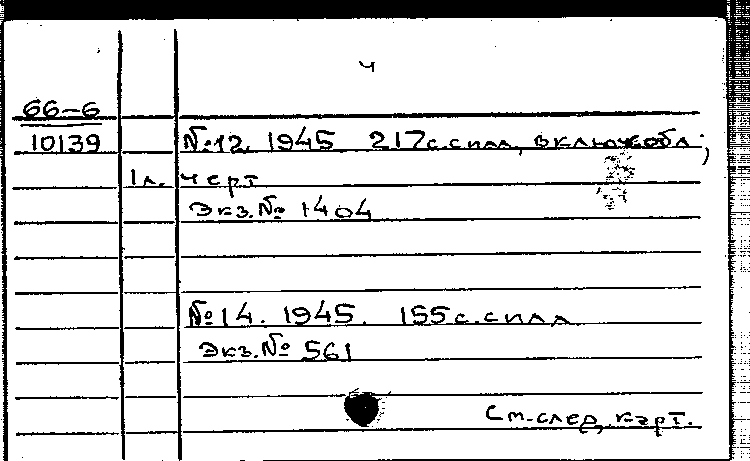 ч
66-6
10139
№12. 1945 217с. с илл, включ. обл;
1л. черт
Экз. № 1404
№14. 1945. 155с. с илл
Экз. № 561
См. след. карт.